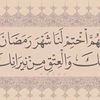 هُمَّ اخْتِمْ لَنَا شَهْرَ رَمَضَانَ
وَالْعِتْقِ مِنْ نِيرَانِكَ